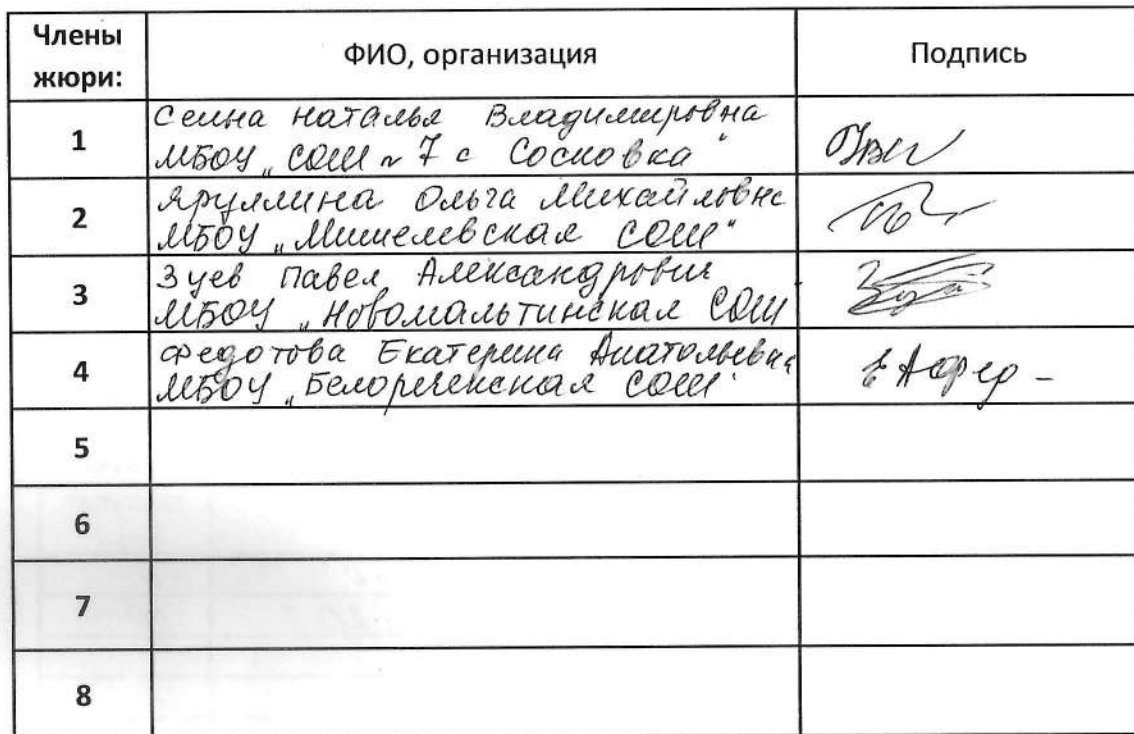 Члены жюри: ФИО, организация Подпись
1 Сеина Наталья Владимировна
МБОУ „СОШ № 7 с Сосновка"
2 Яруллина Ольга Михайловна
МБОУ „Мишелевская СОШ"
3 Зуев Павел Александрович
МБОУ „Новомальтинская СОШ
4 Федотова Екатерина Анатольевна
МБОУ „Белореченская СОШ"
5
6
7
8